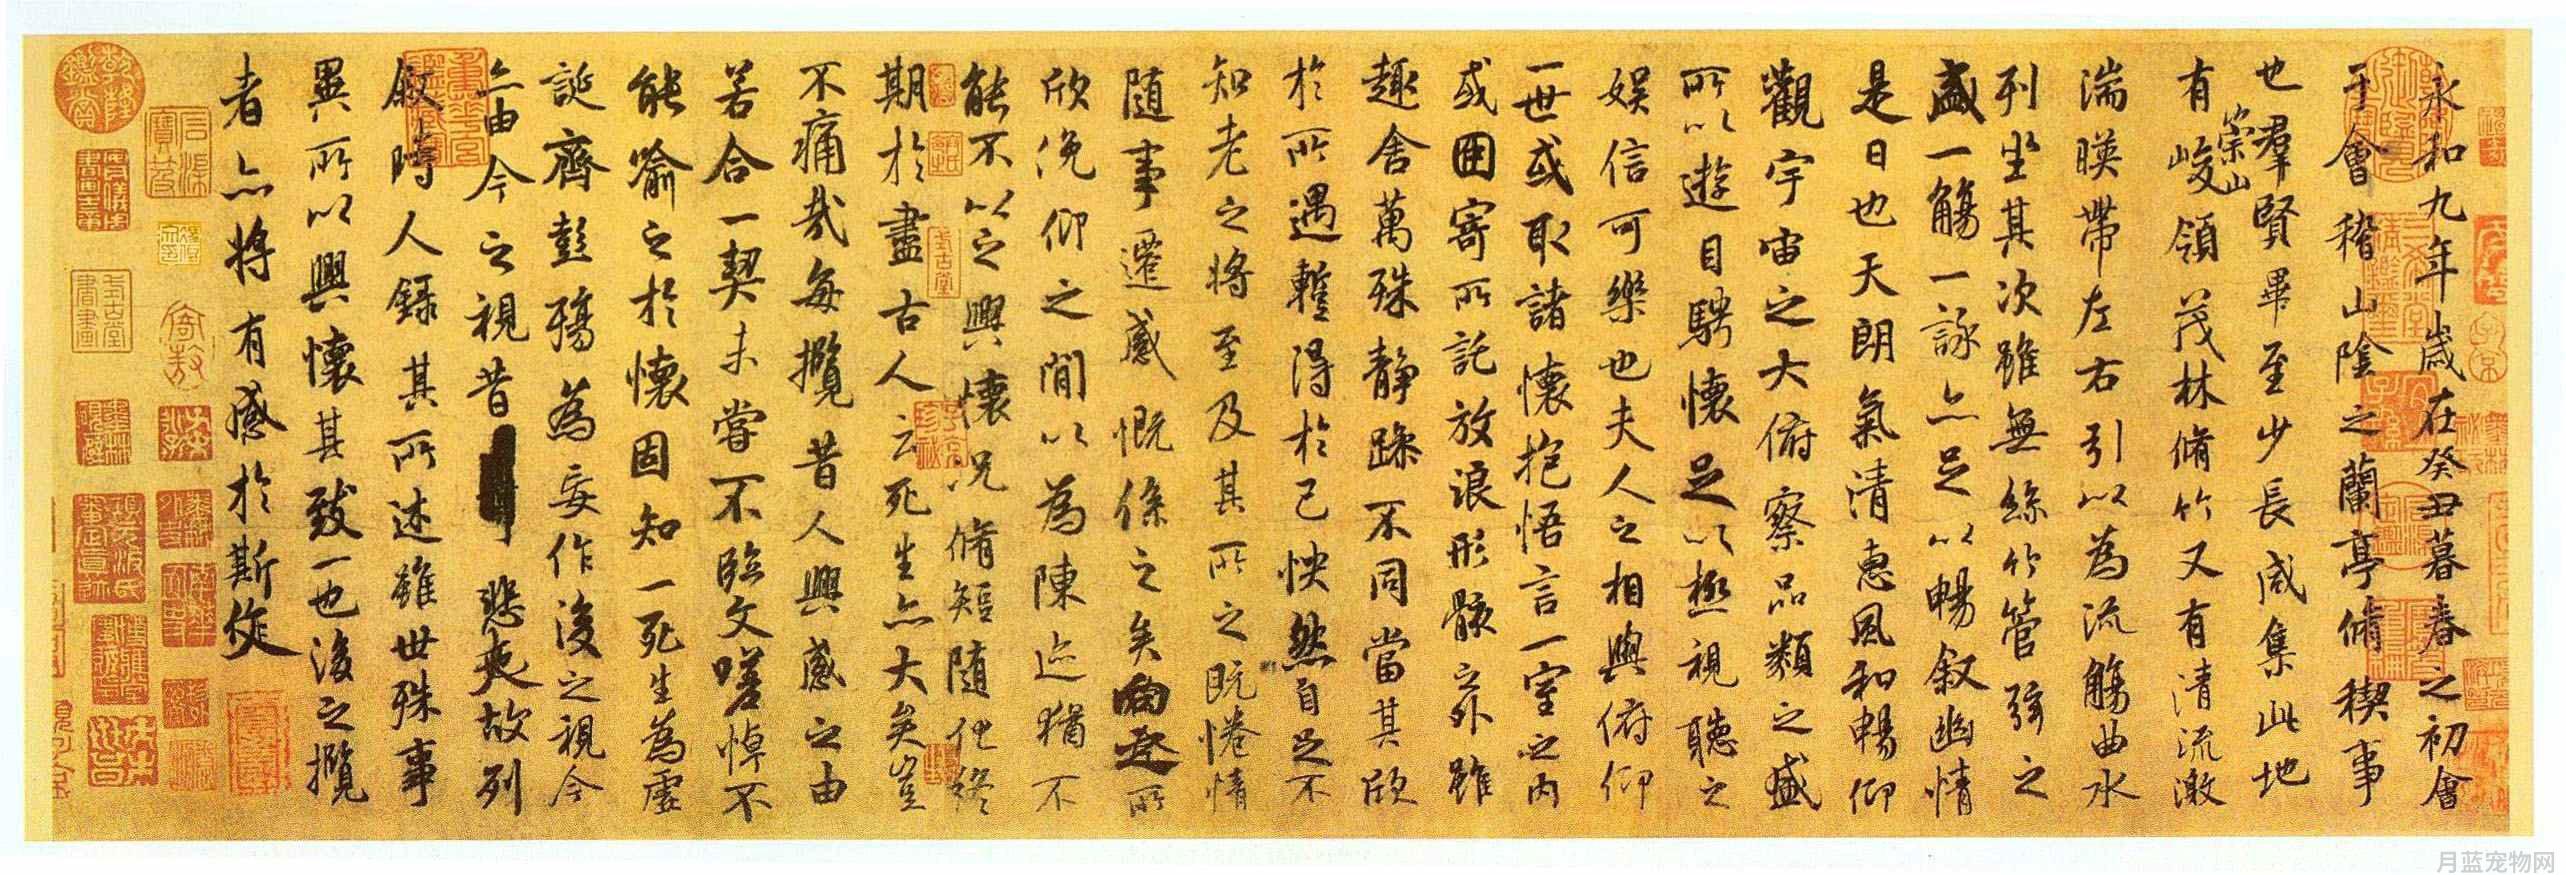 永和九年歲在癸丑暮春之初會
于會稽山陰之蘭亭脩稧事
也羣賢畢至少長咸集此地
有崇山峻領茂林脩竹又有清流激
湍暎帶左右引以為流觴曲水
列坐其次雖無絲竹管弦之
盛一觴一詠亦足以暢叙幽情
是日也天朗氣清惠風和暢仰
觀宇宙之大俯察品類之盛
所以遊目騁懷足以極視聽之
娛信可樂也夫人之相與俯仰
一世或取諸懷抱悟言一室之內
或因寄所託放浪形骸之外雖
趣舍萬殊静躁不同當其欣
於所遇暫得於己怏然自足不
知老之將至及其所之既惓情
隨事遷感慨係之矣向之所
欣俛仰之間以為陳迹猶不
能不以之興懷況脩短隨化終
期於盡古人云死生亦大矣豈
不痛哉每攬昔人興感之由
若合一契未嘗不臨文嗟悼不
能喻之於懷固知一死生為虛
誕齊彭殤為妄作後之視今
亦由今之視昔悲夫故列
叙時人錄其所述雖世殊事
異所以興懷其致一也後之攬
者亦將有感於斯文
月蓝宠物网